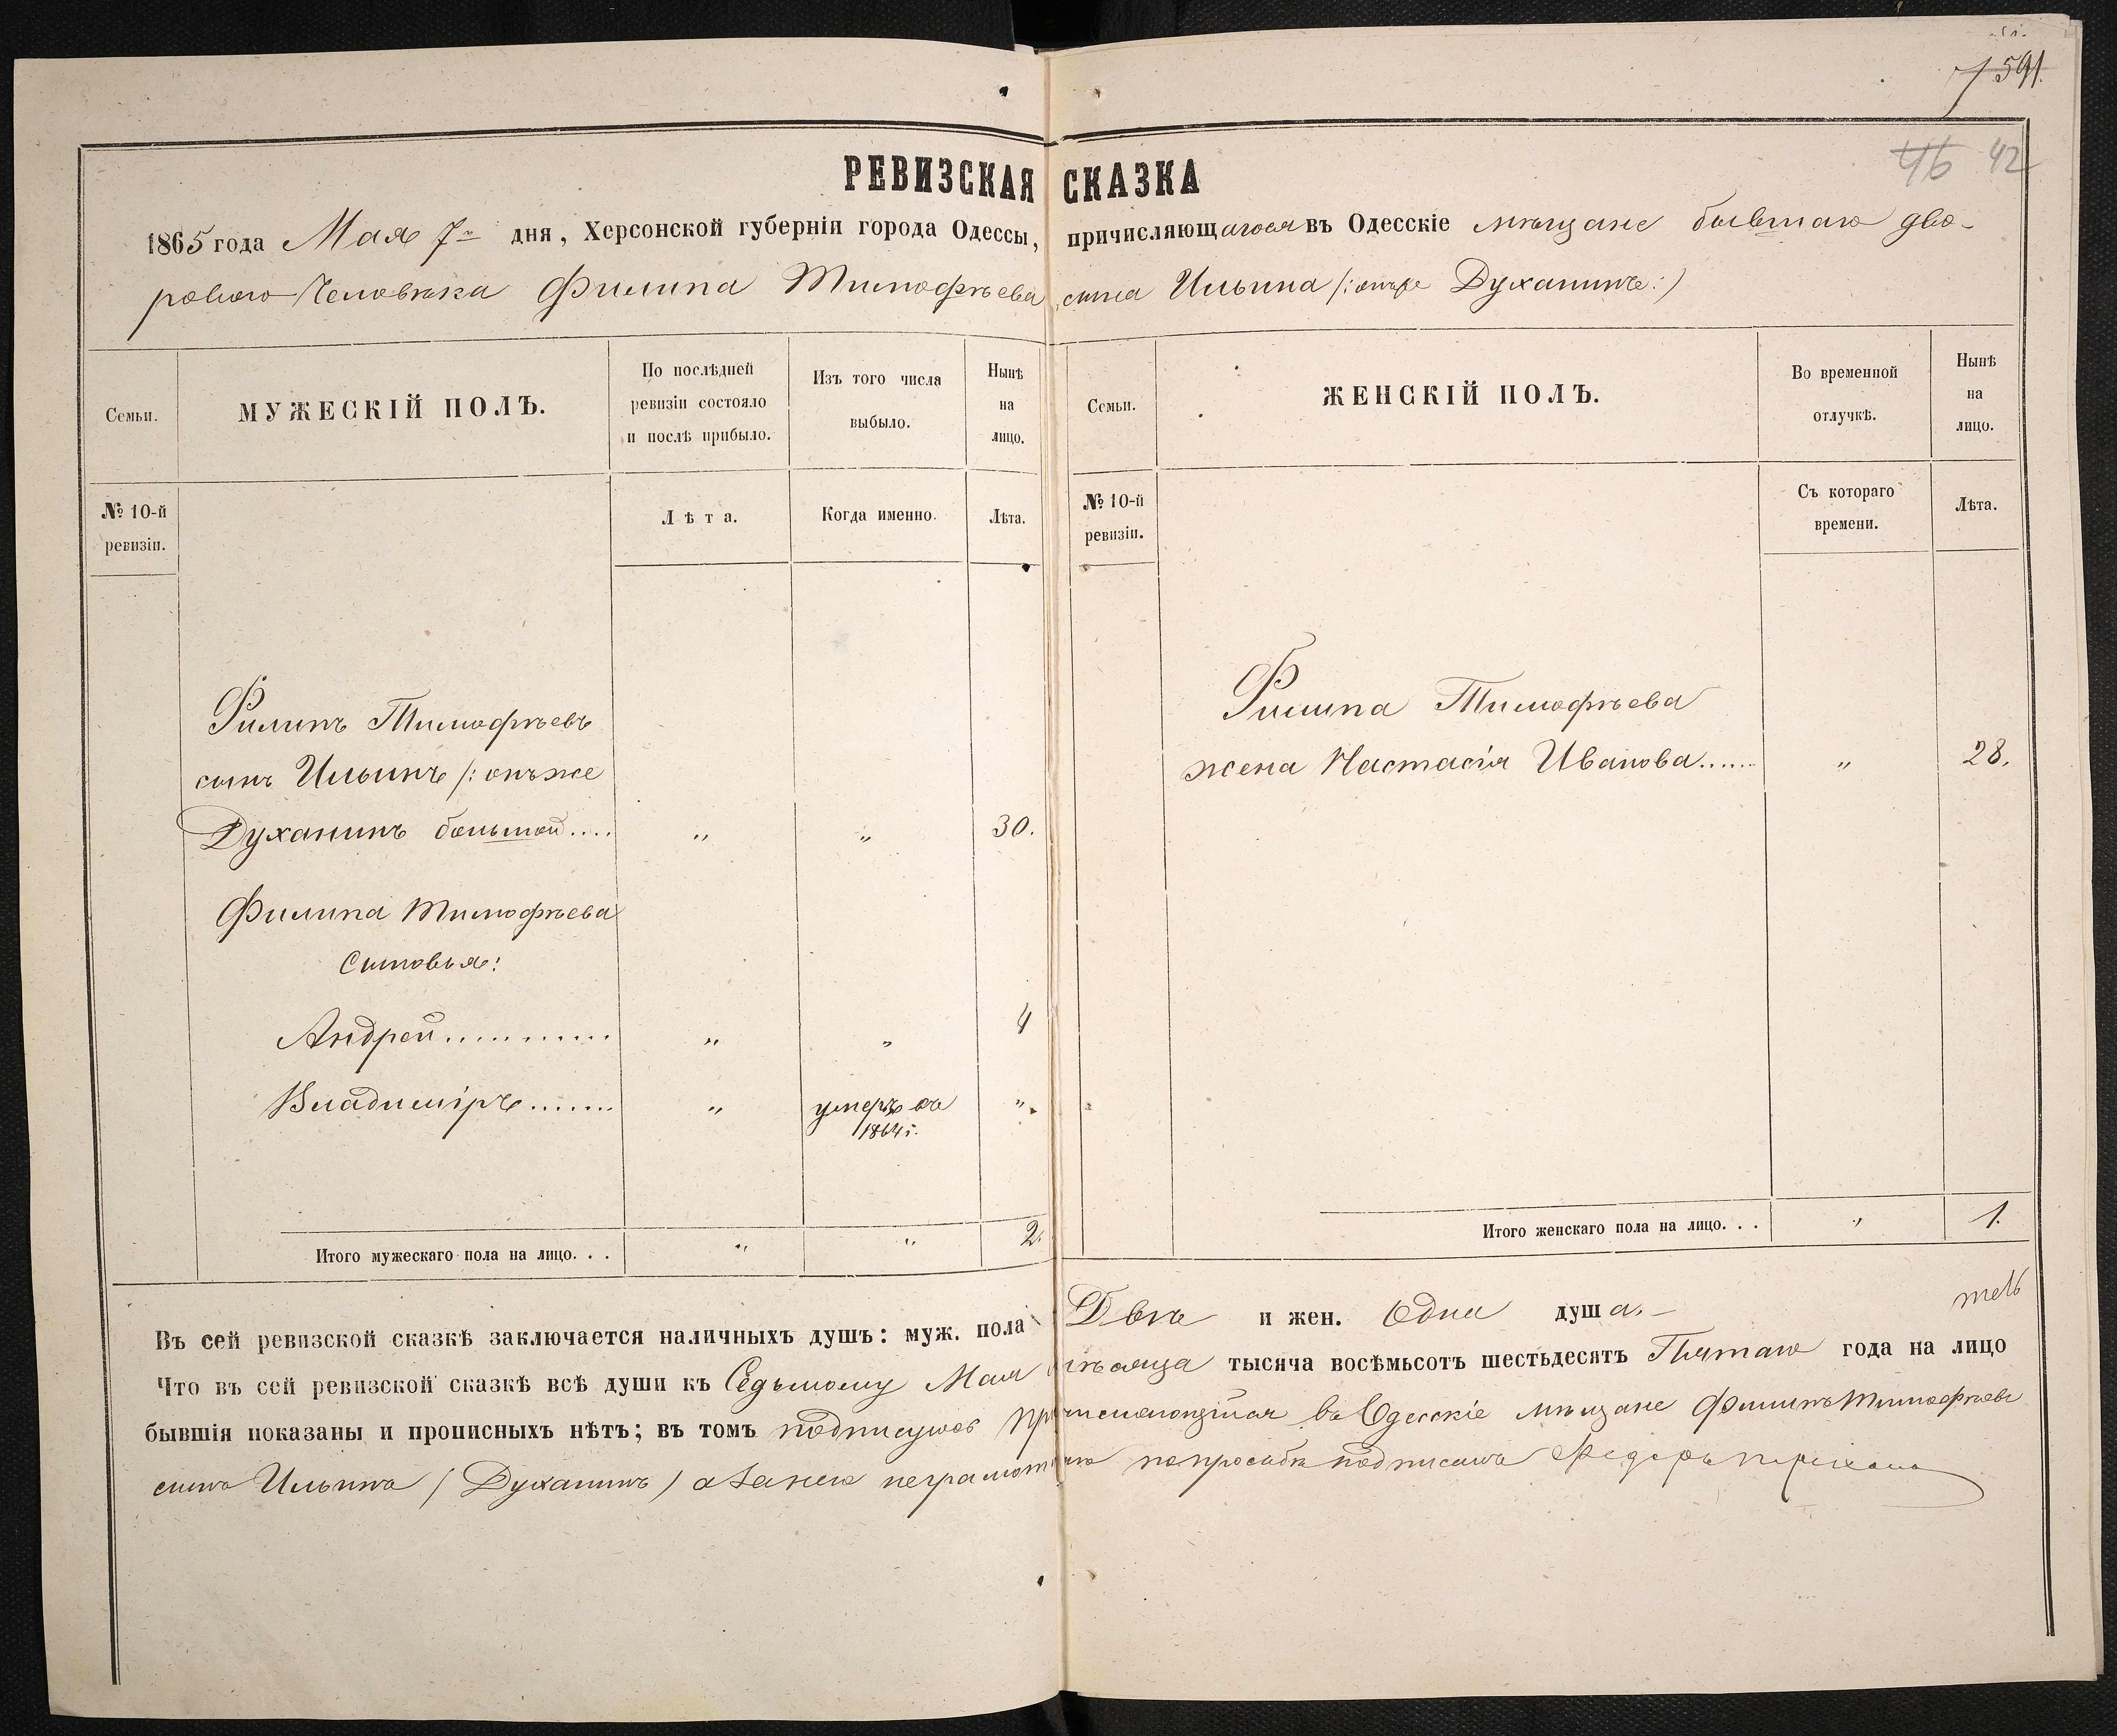 591.
46 42
РЕВИЗСКАЯ СКАЗКА
1865 года Мая 7го дня, Херсонской губерніи города Одессы, причисляющагося въ Одесскіе мѣщане бывшаго дво-
роваго человѣка Филипа Тимофѣева сына Ильина /: онъ же Духанинъ :/
Семьи.
МУЖЕСКІЙ ПОЛЪ.
По послѣдней
ревизіи состояло
и послѣ прибыло.
Изъ того числа
выбыло.
Нынѣ
на
лицо.
№ 10-й
ревизіи.
Лѣта.
Когда именно.
Лѣта.
Филипъ Тимофѣевъ
сынъ Ильинъ /: онъ же
Духанинъ большой.... " " 30.
Филипа Тимофѣева
сыновья:
Андрей............ " " 4
Владиміръ....... " умеръ въ ".
1864 г.
Итого мужескаго пола на лицо. . . " " 2.
Семьи.
ЖЕНСКІЙ ПОЛЪ.
Во временной
отлучкѣ.
Нынѣ
на
лицо.
№ 10-й
ревизіи.
Съ котораго
времени.
Лѣта.
Филипа Тимофѣева
жена Настасія Иванова...... " 28.
Итого женскаго пола на лицо. . . " 1.
Въ сей ревизской сказкѣ заключается наличныхъ душъ: муж. пола Двѣ и жен. Одна душа.
Что въ сей ревизской сказкѣ всѣ души къ Седьмому Мая мѣсяца тысяча восѣмьсотъ шестьдесятъ Пятаго года на лицо
бывшія показаны и прописныхъ нѣтъ; въ томъ подписуюсь причисляющійся въ Одесскіе мѣщане Филипъ Тимофѣевъ
сынъ Ильинъ (Духанинъ) а за него неграмотнаго по просьбѣ подписалъ Федоръ